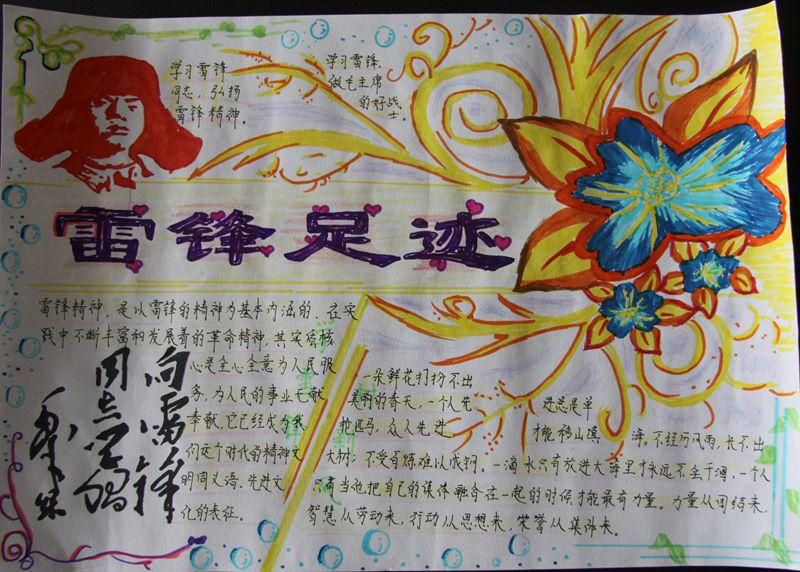 学习雷锋
同志，弘扬
雷锋精神。
学习雷锋，
做毛主席
的好战
士。
雷锋足迹
雷锋精神，是以雷锋的精神为基本内涵的、在实
践中不断丰富和发展着的革命精神，其实质核
心是全心全意为人民服
务，为人民的事业无私
奉献，它已经成为我
们这个时代的精神文
明同义语、先进文
化的表征。
向雷锋
同志学习
毛泽东
一朵鲜花打扮不出
美丽的春天，一个人先
进总是单
枪匹马，众人先进
才能移山填
海。不经历风雨，长不出
大树；不受百炼难以成钢。一滴水只有放进大海里才永远不会干涸，一个人
只有当他把自己的集体融合在一起的时候才能最有力量。力量从团结来，
智慧从劳动来，行动从思想来，荣誉从集体来。